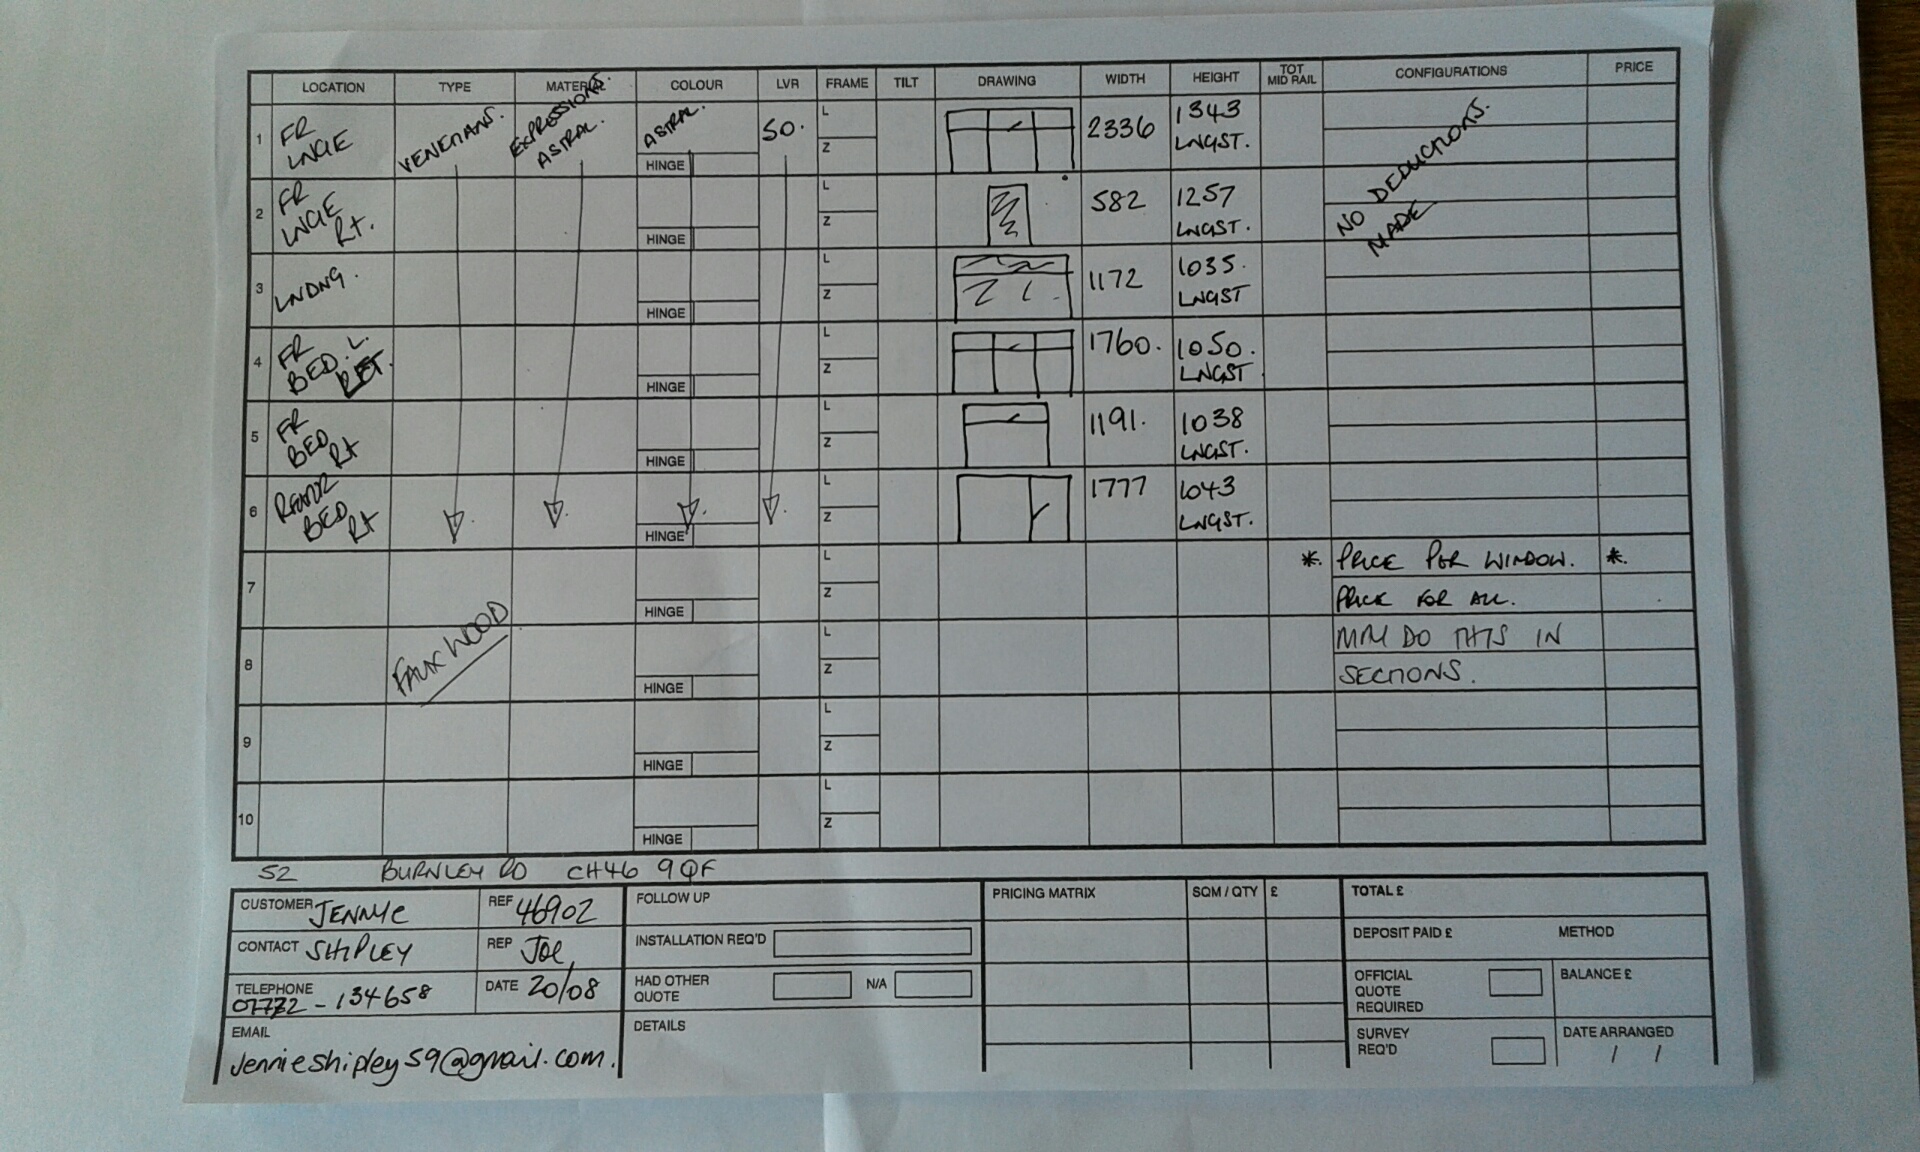 LOCATION TYPE MATERIAL COLOUR LVR FRAME TILT DRAWING WIDTH HEIGHT TOT MID RAIL CONFIGURATIONS PRICE
1 FR LNGE VENETIANS. EXPRESSIONS ASTRAL. ASTRAL. HINGE 50. L Z 2336 1343 LNGST. NO DEDUCTIONS. MADE
2 FR LNGE RT. HINGE L Z 582 1257 LNGST.
3 LNDNG. HINGE L Z 1172 1035. LNGST
4 FR BED. L. HINGE L Z 1760. 1050. LNGST
5 FR BED RT HINGE L Z 1191. 1038 LNGST.
6 REAR BED RT HINGE L Z 1777 1043 LNGST.
7 HINGE L Z *. PRICE PER WINDOW. *.
PRICE FOR ALL.
8 FAUX WOOD HINGE L Z MAY DO THIS IN
SECTIONS.
9 HINGE L Z
10 HINGE L Z
52 BURNLEY RD CH46 9QF
CUSTOMER JENNIE REF 46902
CONTACT SHIPLEY REP JOE
TELEPHONE 07772-134658 DATE 20/08
EMAIL
jennieshipley59@gmail.com.
FOLLOW UP
INSTALLATION REQ'D
HAD OTHER QUOTE N/A
DETAILS
PRICING MATRIX SQM / QTY £
TOTAL £
DEPOSIT PAID £ METHOD
OFFICIAL QUOTE REQUIRED BALANCE £
SURVEY REQ'D DATE ARRANGED
/ /